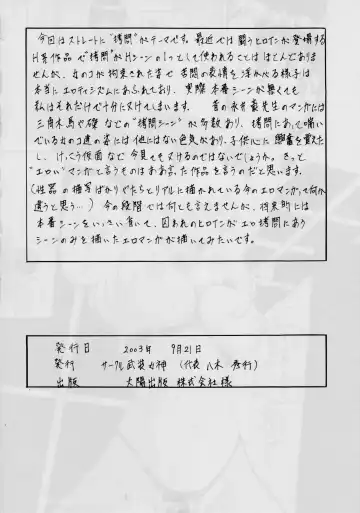 今回はストレートに"拷問"がテーマです。最近では闘うヒロインが登場する
H系作品で"拷問"がHシーンの1つとして使われることはほとんどありま
せんが、女のコが拘束された姿で苦悶の表情を浮かべる様子は
本当にエロティシズムにあふれており、実際本番シーンが無くても
私はそれだけで十分にヌけてしまいます。 昔の永井豪先生のマンガには
三角木馬や磔などの"拷問シーン"が多数あり、拷問にあって喘い
でいる女のコ達の姿には他にはない色気があり、子供心に興奮を覚えた
し、けっこう仮面など今見てもヌけるのではないでしょうか。きっと
"エロい"マンガと言うものはああ言った作品を言うのだと思います。
(性器の描写ばかりやたらとリアルに描かれている今のエロマンガって何か
違うと思う…) 今の段階では何とも言えませんが、将来的には
本番シーンをいっさい省き、囚われのヒロインがエロ拷問にあう
シーンのみを描いたエロマンガが描いてみたいです。
発行日 2003年 9月21日
発行 サークル武装女神 (代表 八木 秀行)
出版 大陽出版 株式会社様